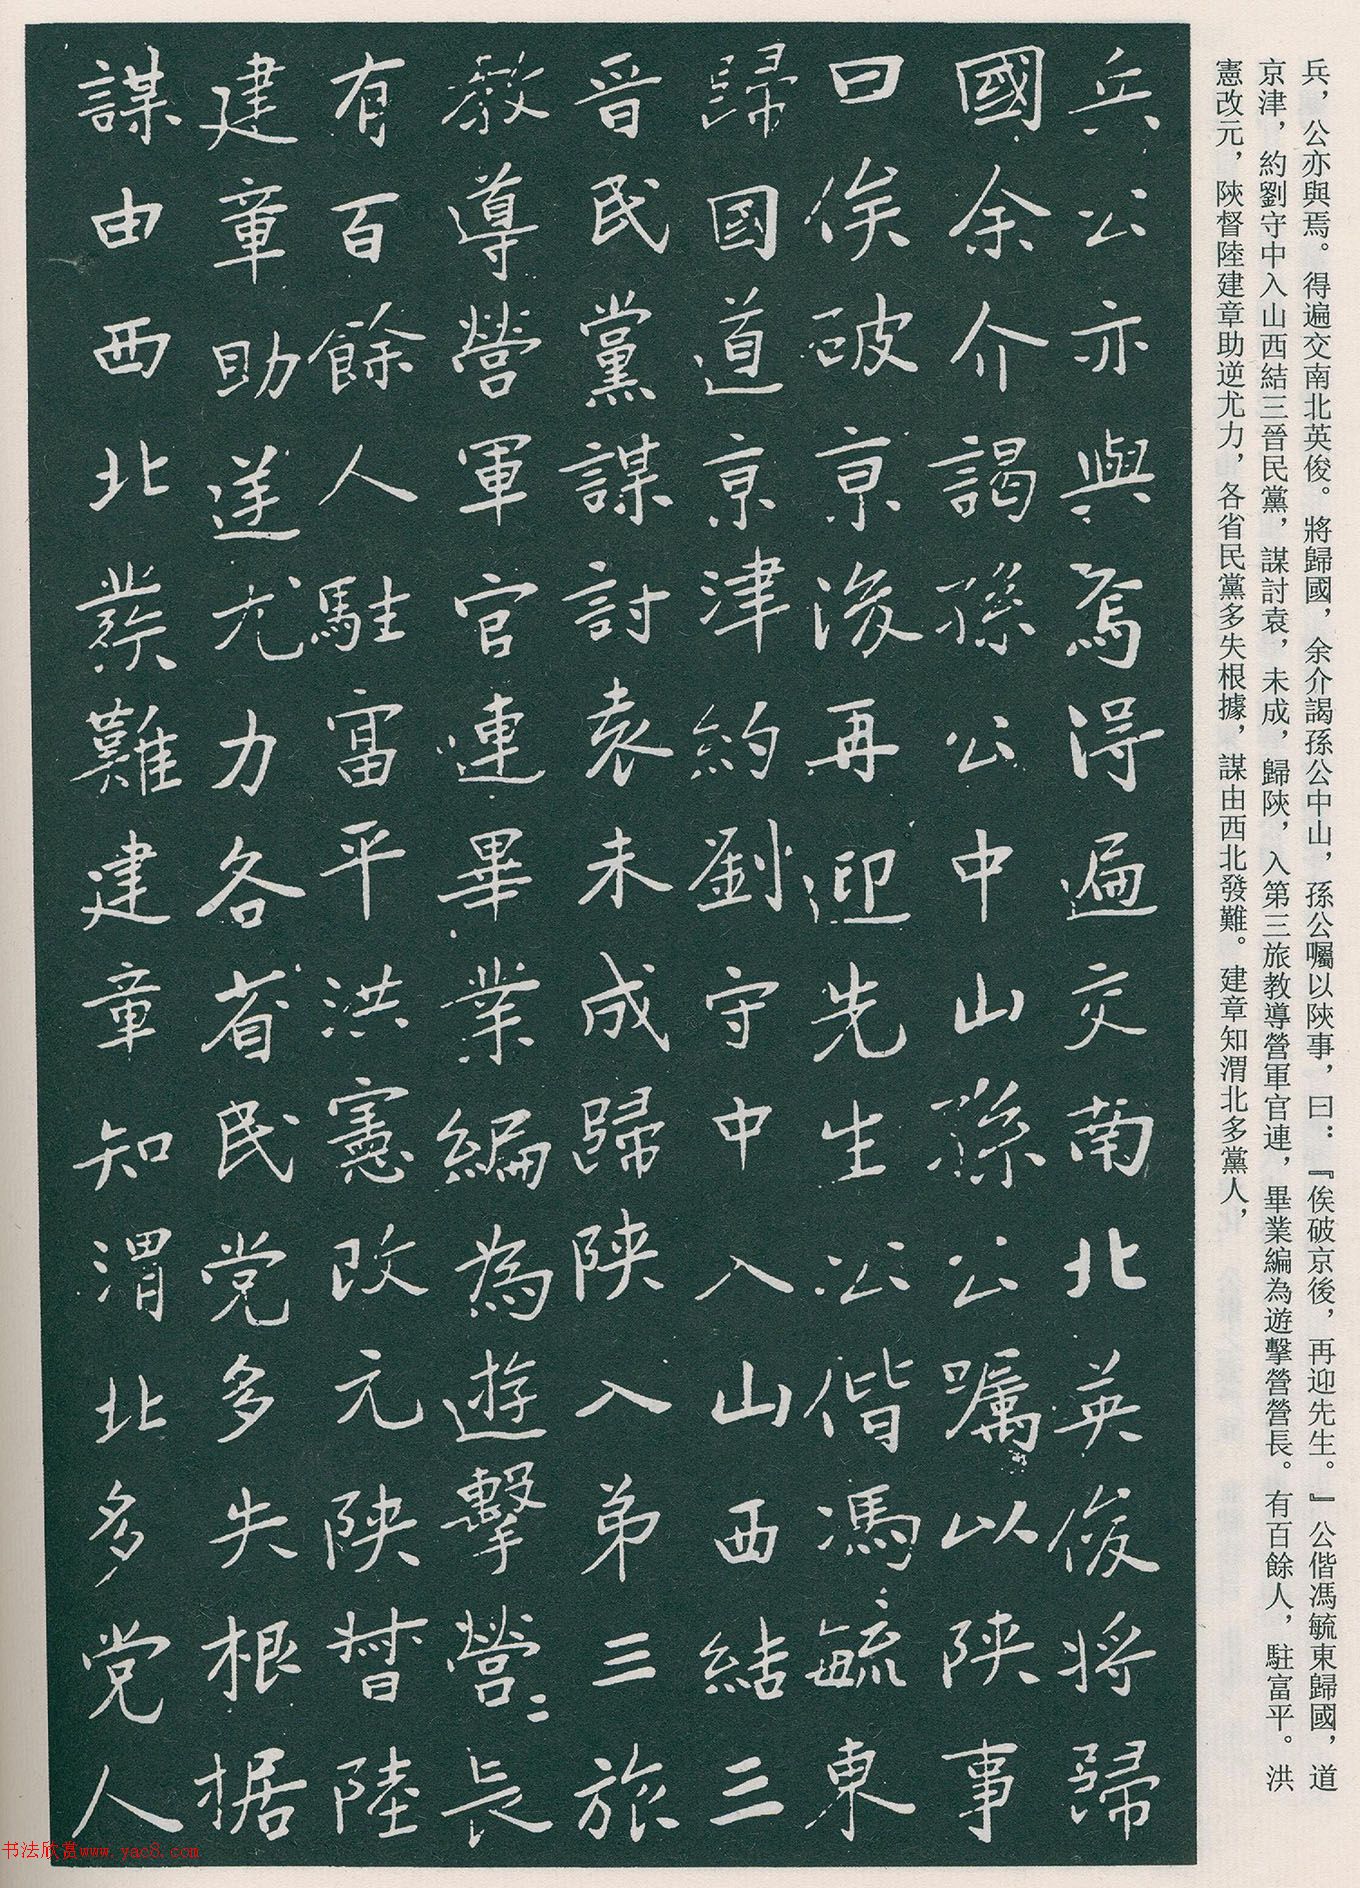 兵，公亦與焉。得遍交南北英俊。將歸國，余介謁孫公中山，孫公囑以陝事，曰：『俟破京後，再迎先生。』公偕馮毓東歸國，道
京津，約劉守中入山西結三晉民黨，謀討袁，未成，歸陝，入第三旅教導營軍官連，畢業編為遊擊營營長。有百餘人，駐富平。洪
憲改元，陝督陸建章助逆尤力，各省民黨多失根據，謀由西北發難。建章知渭北多黨人，
兵公亦與焉得遍交南北英俊将歸
國余介謁孫公中山孫公嘱以陕事
曰俟破京後再迎先生公偕馮毓東
歸國道京津約劉守中入山西結三
晋民黨謀討袁未成歸陕入弟三旅
教導營軍官連畢業編為遊擊營〻長
有百餘人駐富平洪憲改元陕督陸
建章助逆尤力各省民党多失根据
謀由西北發難建章知渭北多党人
书法欣赏www.yac8.com